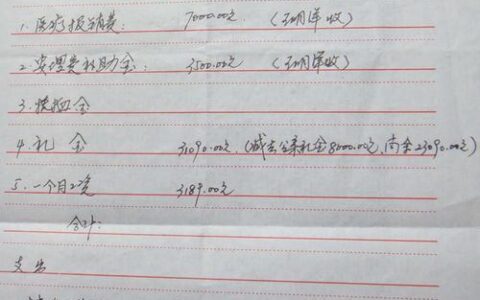 1. 医疗报销费: 7000.00元 (王明泽收)
2. 安埋费补助金: 3500.00元 (王明泽收)
3. 抚恤金
4. 礼金 31090.00元 (减去公亲礼金8000.00元, 尚余23090.00元)
5. 一个月工资 3189.00元
合计:
支出